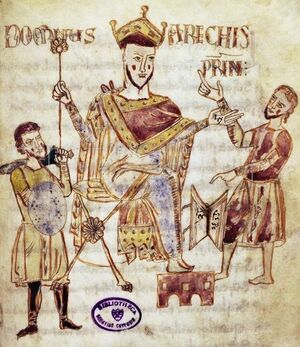 DOMNUS ARECHIS
PRIN:
BIBLIOTECA